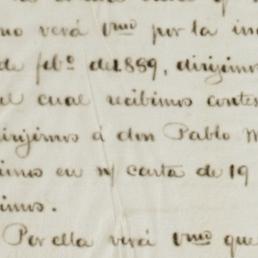 mo verá Vmo por la ins
de febº. de 1889, dirijimos
al cual recibimos contes
dirijirnos á don Pablo M
timos en n/ carta de 19
imos.
Por ella verá Vmo que